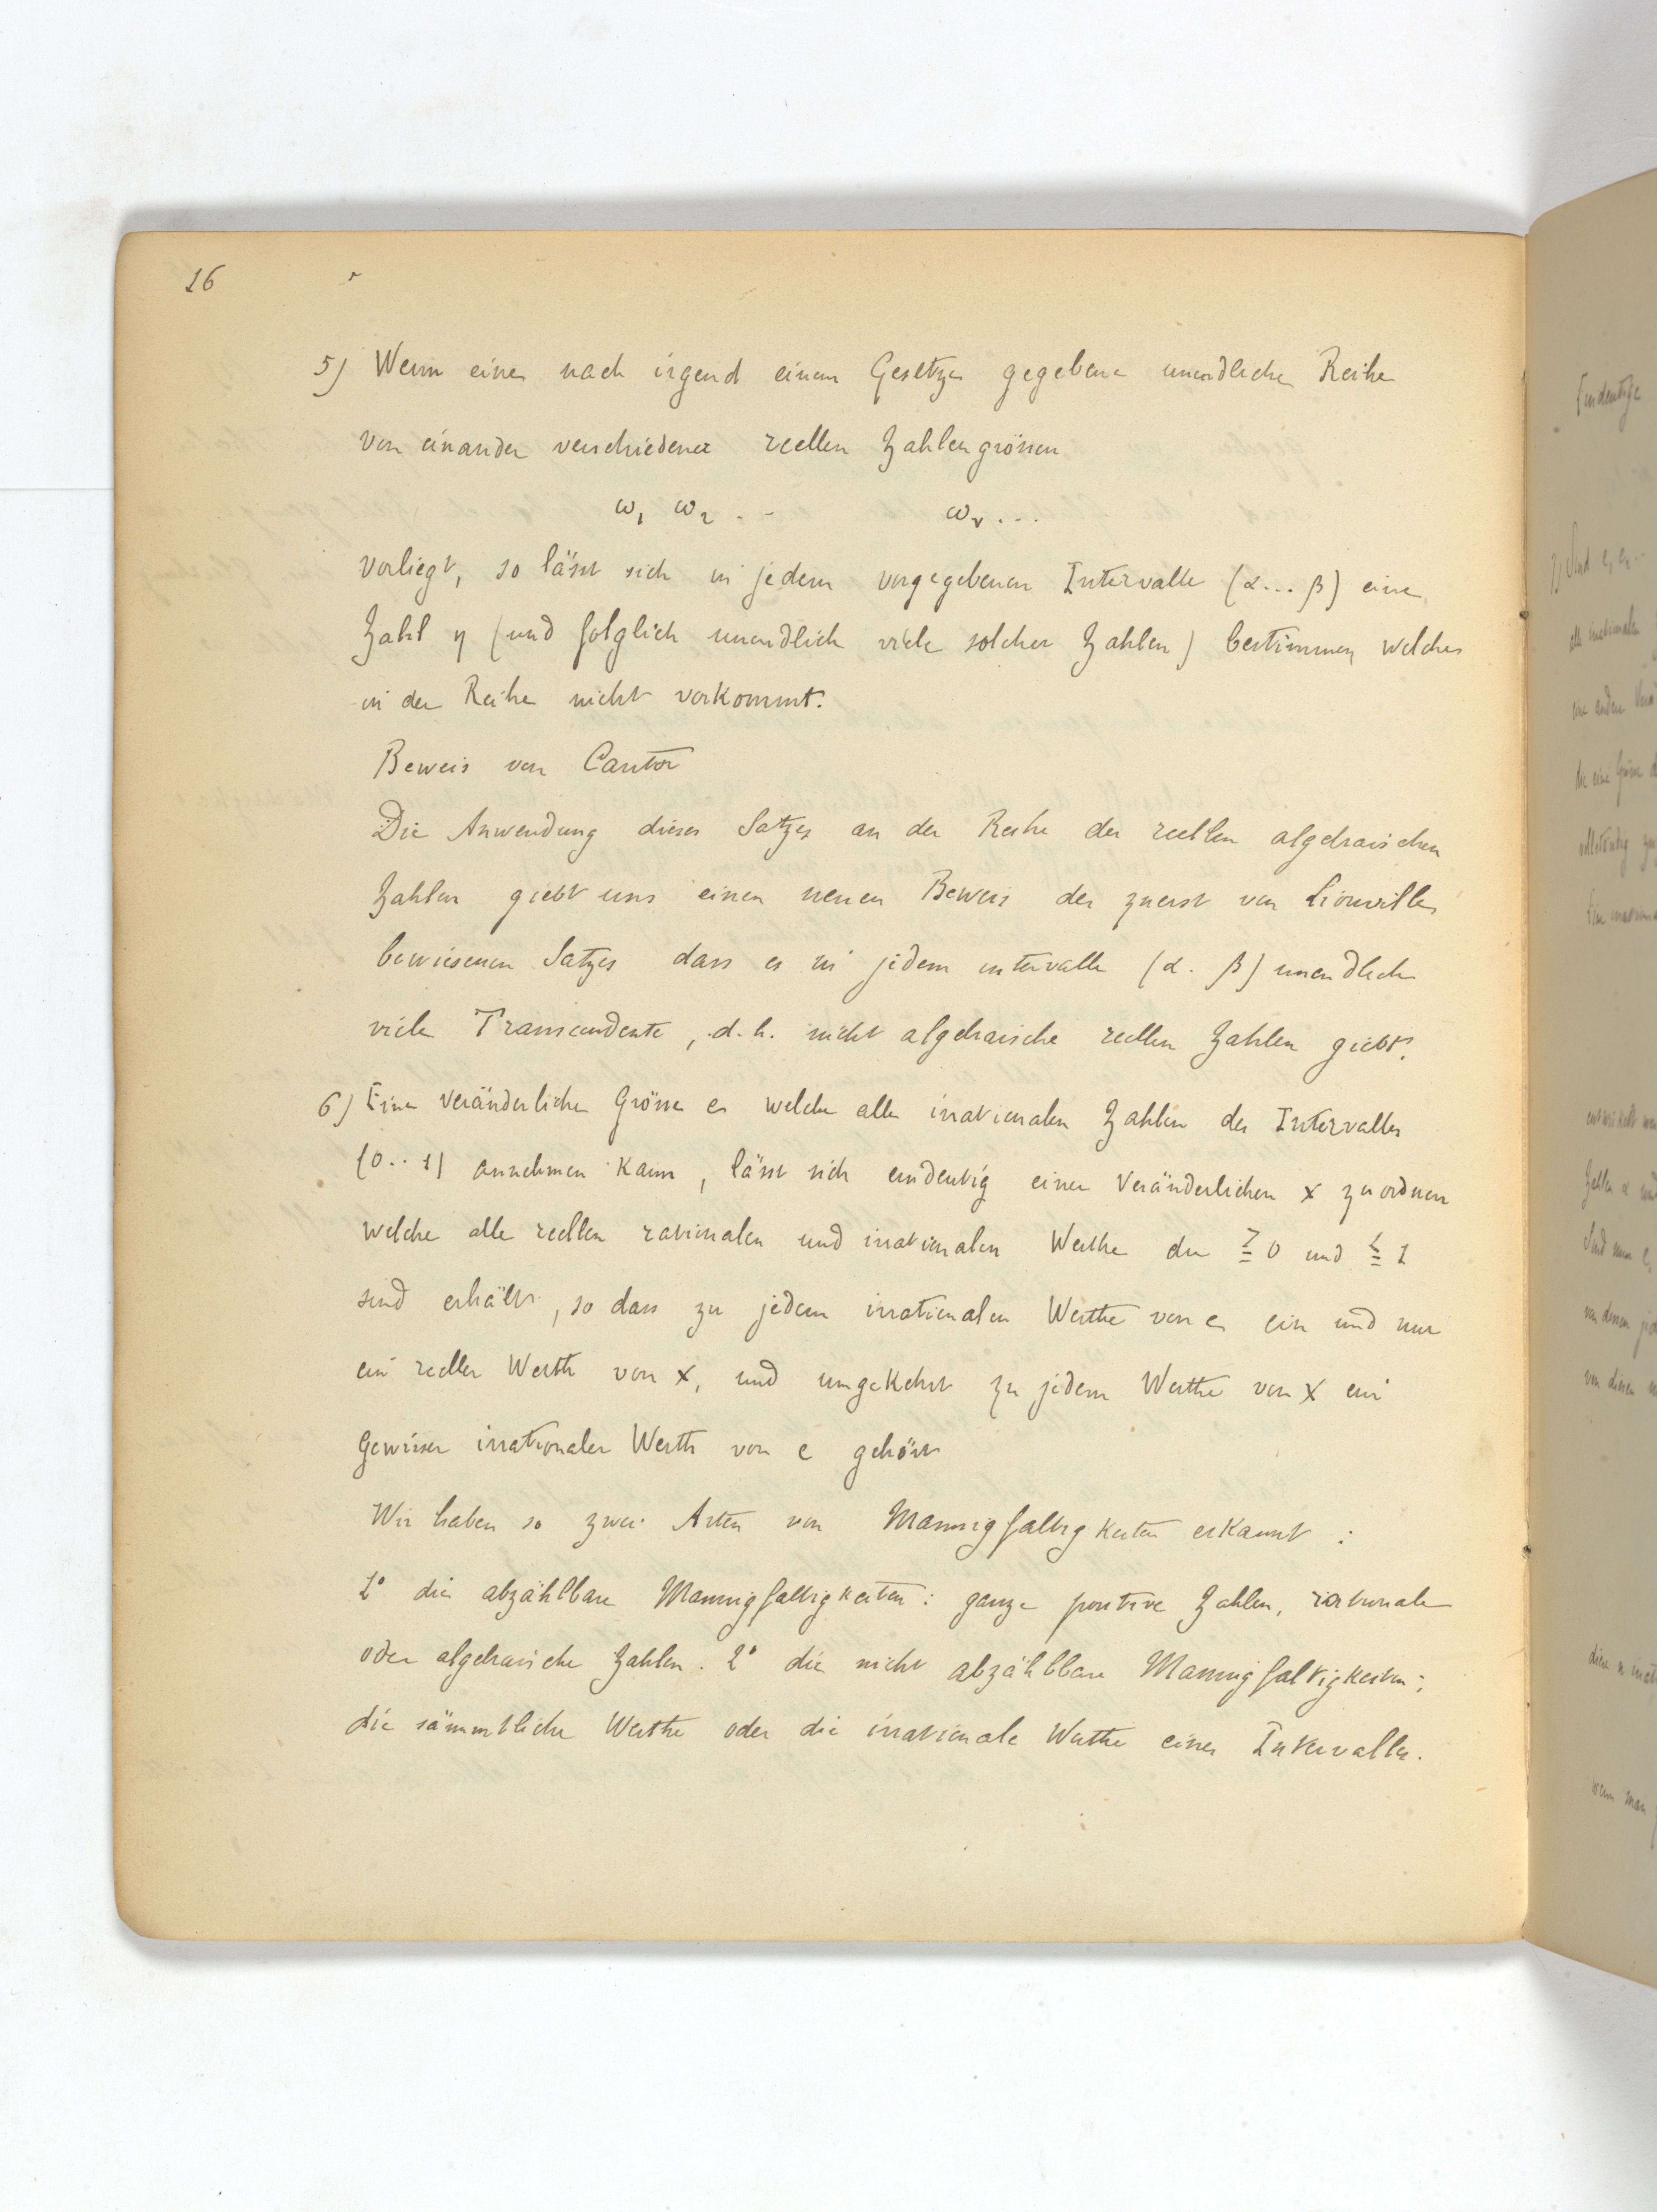 16
5) Wenn eine nach irgend einem Gesetze gegebene unendliche Reihe
von einander verschiedener reellen Zahlengrössen
ω₁ ω₂ . . ω_ν ...
vorliegt, so lässt sich in jedem vorgegebenen Intervalle (α... β) eine
Zahl η (und folglich unendlich viele solcher Zahlen) bestimmen welche
in der Reihe nicht vorkommt.
Beweis von Cantor
Die Anwendung dieses Satzes an der Reihe der reellen algebraischen
Zahlen giebt uns einen neuen Beweis des zuerst von Liouville
bewiesenen Satzes dass es in jedem intervalle (α . β) unendlich
viele Transcendente, d.h. nicht algebraische reellen Zahlen giebt.
6) Eine Veränderliche Grösse e welche alle irrationalen Zahlen des Intervalles
(0..1) annehmen kann, lässt sich eindeutig einer Veränderlichen x zuordnen
welche alle reellen rationalen und irrationalen Werthe die ≧ 0 und ≦ 1
sind erhält, so dass zu jedem irrationalen Werthe von e ein und nur
ein reeller Werth von x, und umgekehrt zu jedem Werthe von x ein
Gewisser irrationaler Werth von e gehört
Wir haben so zwei Arten von Mannigfaltigkeiten erkannt :
1° die abzählbare Mannigfaltigkeiten: ganze positive Zahlen, rationale
oder algebraische Zahlen. 2° die nicht abzählbare Mannigfaltigkeiten;
die sämmtliche Werthe oder die irrationale Werthe eines Intervalles.
Eindeutige
7) Sind e, e₂..
alle irrationalen
eine andere
die eine Grösse d
vollständig
Eine
entwickelt
Zahlen α und
Sind nun e,
von denen
von diesen
diese n
wenn man